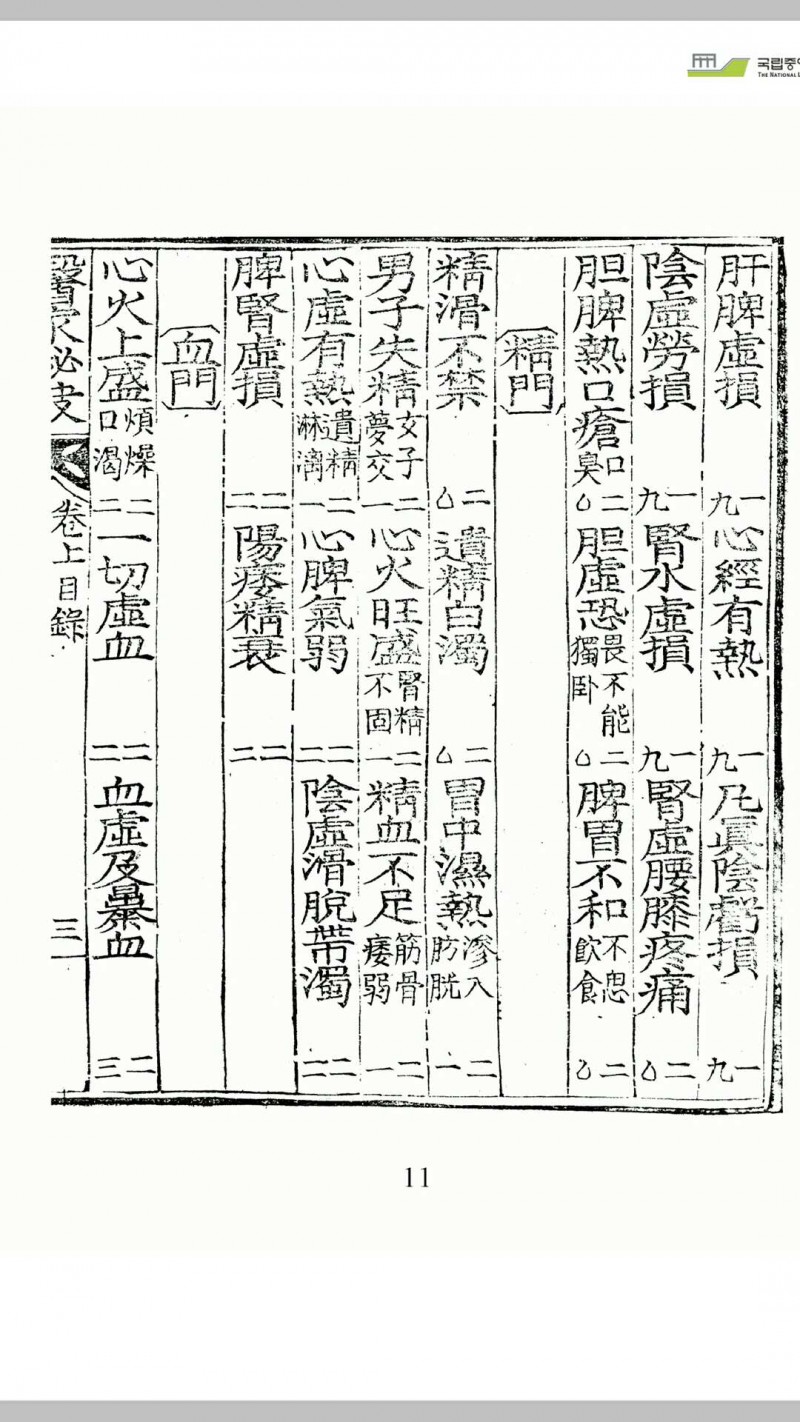 국립중
THE NATIONAL L
肝脾虛損 一九 心經有熱 一九 凡眞陰虧損 一九
陰虛勞損 一九 腎水虛損 一九 腎虛腰膝疼痛 二〇
胆脾熱口瘡口臭 二〇 胆虛恐畏不能獨卧 二〇 脾胃不和不思飮食 二〇
精門
精滑不禁 二〇 遺精白濁 二〇 胃中濕熱滲入肪胱 二一
男子失精女子夢交 二一 心火旺盛腎精不固 二一 精血不足筋骨痿弱 二一
心虛有熱遺精淋漓 二一 心脾氣弱 二二 陰虛滑脫帶濁 二二
脾腎虛損 二二 陽痿精衰 二二
血門
心火上盛煩燥口渴 二二 一切虛血 二二 血虛及暴血 二三
醫家秘 卷上目錄 三一
11